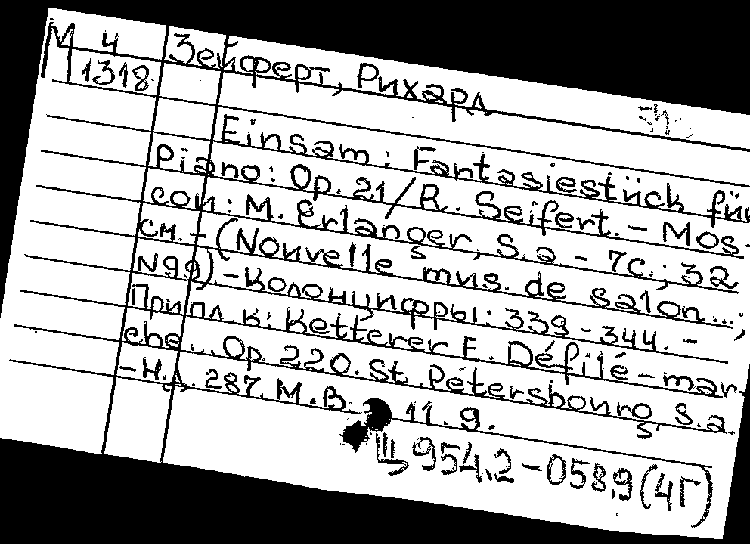 М 4 Зейферт, Рихард
1318
Einsam: Fantasiestück für
Piano: Op. 21/R. Seifert. – Mos-
cou: M. Erlanger, S.a – 7с.; 32
см. – (Nouvelle mus. de salon...;
N99). – Колонцифры: 339-344. –
Припл. к: Ketterer E. Défilé-mar-
che... Op. 220. St. Pétersbourg, S.a.
– Н.д. 287. М.В. 11.9.
Щ954.2-058,9(4Г)